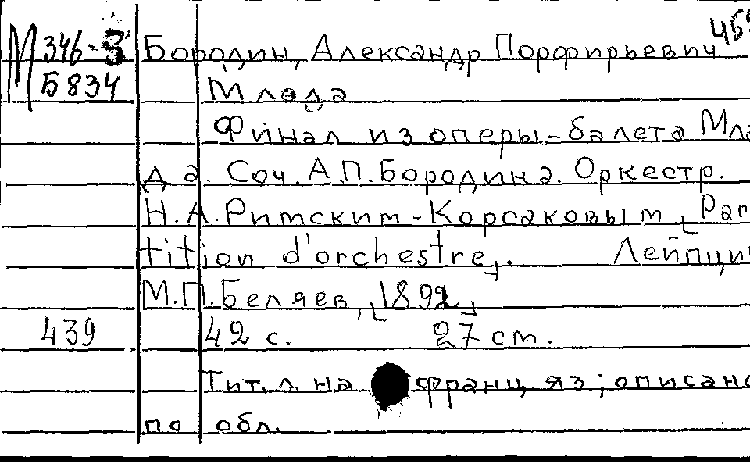 М 346-3 Бородин, Александр Порфирьевич
Б 834 Млада
Финал из оперы-балета Мла
да. Соч. А.П.Бородина. Оркестр.
Н.А.Римским-Корсаковым [Par
tition d'orchestre]. Лейпциг
М.П.Беляев, [1892]
439 42 с. 27 см.
Тит. л. на франц. яз; описано
по обл.